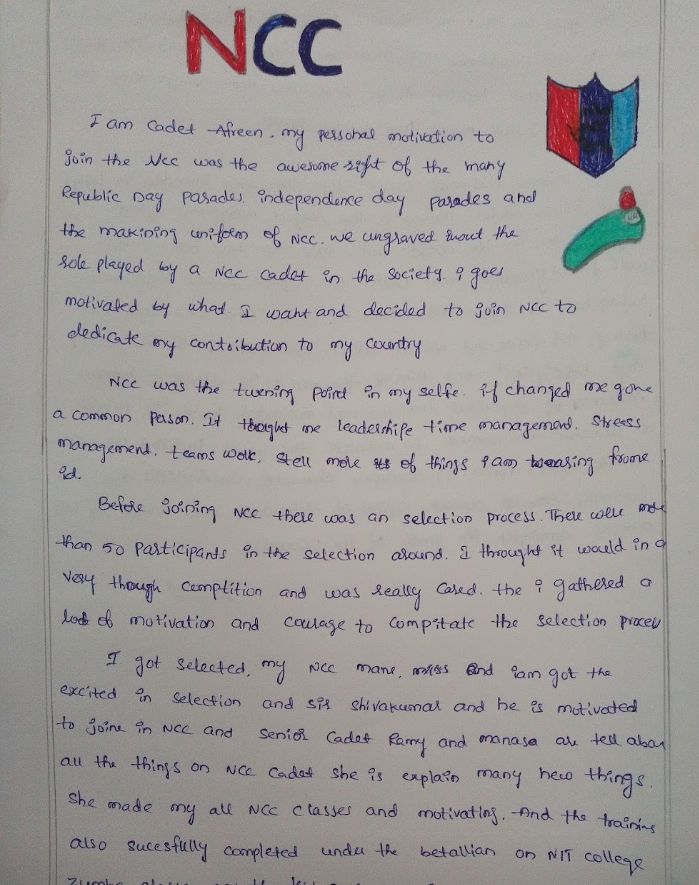 NCC
I am Cadet Afreen. my personal motivation to
join the Ncc was the awesome sight of the many
Republic Day parades, independence day parades and
the makining uniform of NCC. we ungraved the
role played by a NCC Cadet in the society. I goes
motivated by what I want and decided to join NCC to
dedicate my contribution to my country
NCC was the twening point in my selfe. if changed me gone
a common Pason. It thought me leadership time management. Stress
management. teams work. Stell more of things I am frome
id.
Before joining NCC there was an selection process. There were more
than 50 Participants in the selection around. I throught it would in a
very though Complition and was really Cared. the i gathered a
lod of motivation and courage to Compitate the selection proces
I got selected, my NCC mane, and iam got the
excited in selection and sir shivakumar and he is motivated
to joine in NCC and senior Cadet Ramy and manasa are tell abou
all the things on NCC Cadet she is explain many new things.
She made my all NCC classes and motivating. And the training
also sucesfully completed under the betallian on NIT college
Zumba